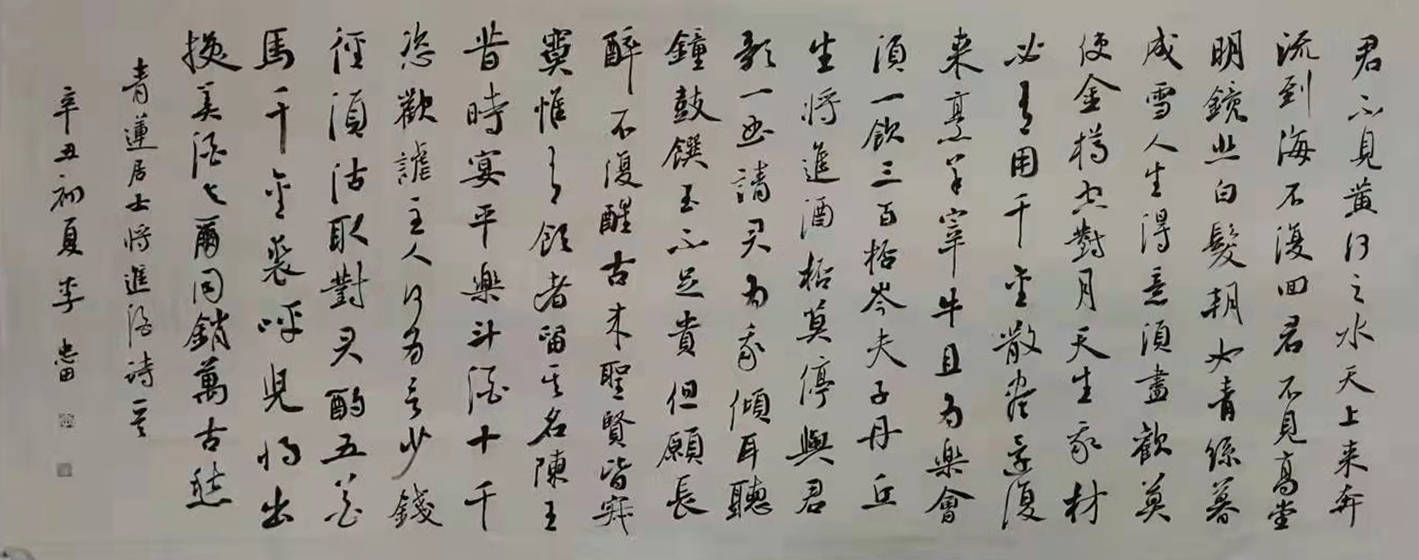 君不見黄河之水天上来奔
流到海不復回君不見高堂
明鏡悲白髮朝如青絲暮
成雪人生得意須盡歡莫
使金樽空對月天生我材
必有用千金散盡還復
来烹羊宰牛且为樂會
須一飲三百杯岑夫子丹丘
生將進酒杯莫停與君
歌一曲請君为我傾耳聽
鐘鼓饌玉不足貴但願長
醉不復醒古来聖賢皆寂
寞惟有飲者留其名陳王
昔時宴平樂斗酒十千
恣歡謔主人何为言少錢
徑須沽取對君酌五花
馬千金裘呼兒將出
換美酒與爾同銷萬古愁
青蓮居士將進酒詩一首
辛丑初夏李忠田